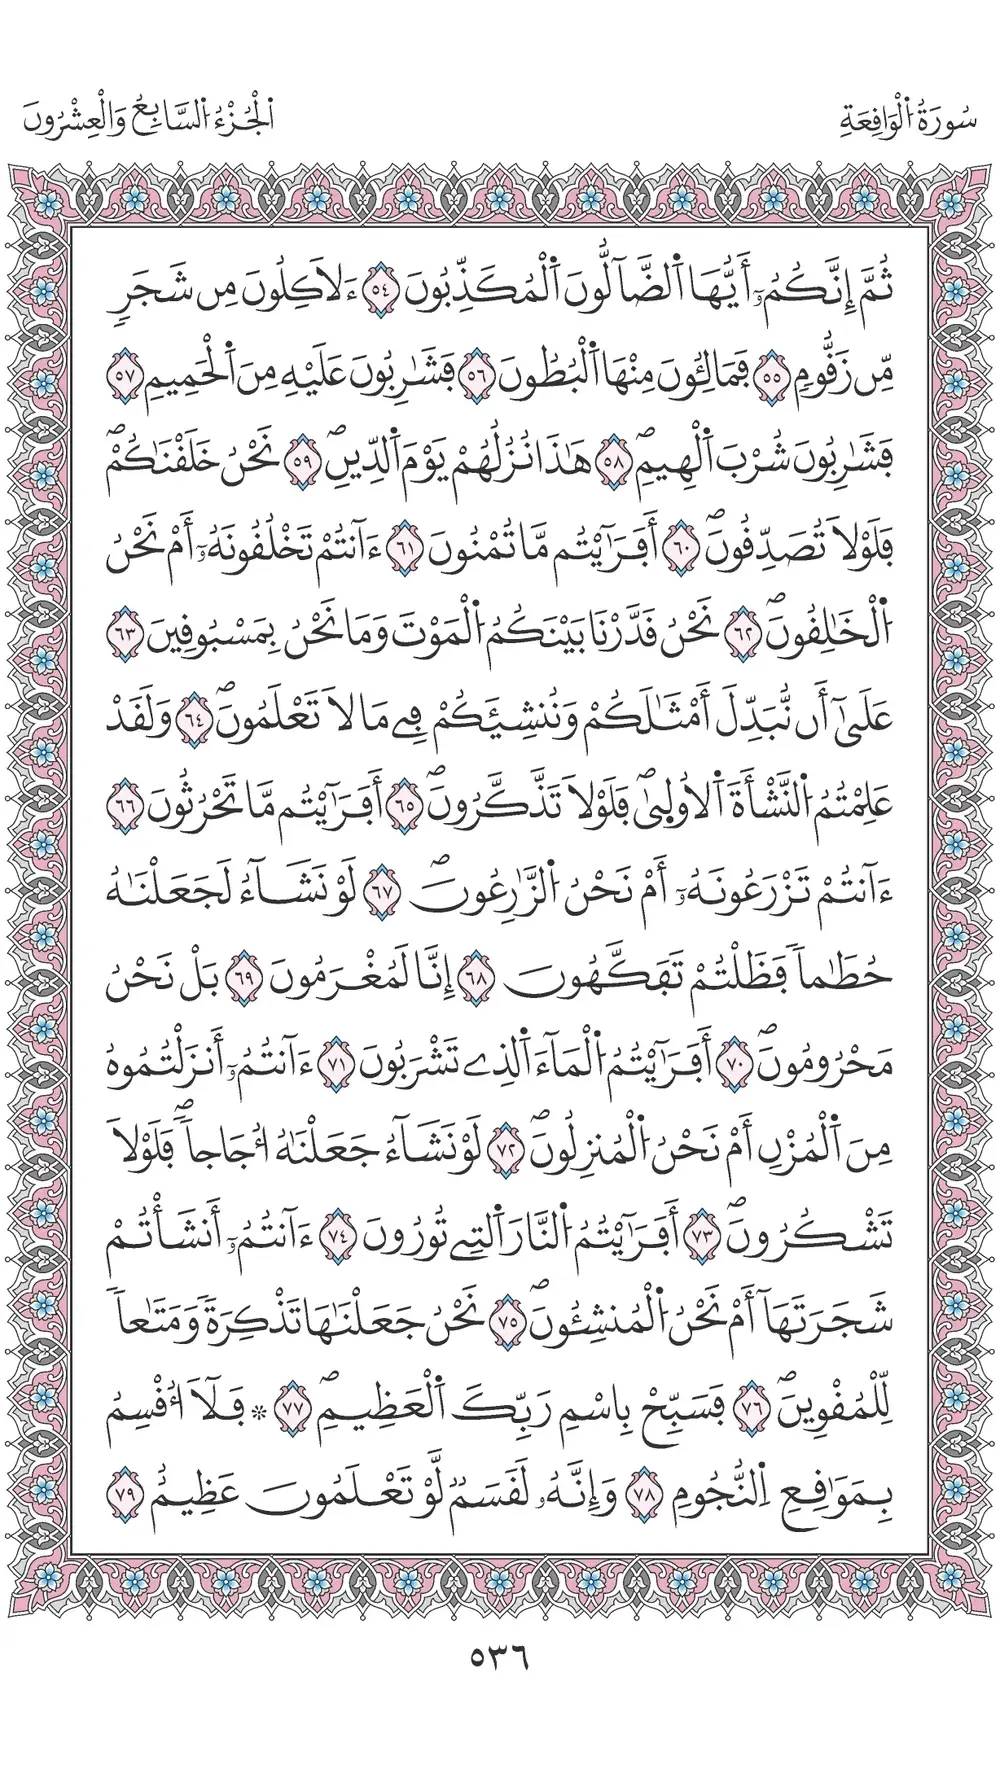 سُورَةُ اُ۬لْوَاقِعَةِ
اَ۬لْجُزْءُ اُ۬لسَّابِعُ وَالْعِشْرُونَ
ثُمَّ إِنَّكُمُۥٓ أَيُّهَا اَ۬لضَّآلُّونَ اَ۬لْمُكَذِّبُونَ ٥٤ ءَلَاكِلُونَ مِن شَجَرٖ
مِّن زَقُّومٖ ٥٥ فَمَالِـُٔونَ مِنْهَا اَ۬لْبُطُونَ ٥٦ فَشَٰرِبُونَ عَلَيْهِ مِنَ اَ۬لْحَمِيمِ ٥٧
فَشَٰرِبُونَ شُرْبَ اَ۬لْهِيمِۖ ٥٨ هَٰذَا نُزُلُهُمْ يَوْمَ اَ۬لدِّينِۖ ٥٩ نَحْنُ خَلَقْنَٰكُمْۖ
فَلَوْلَا تُصَدِّقُونَۖ ٦٠ أَفَرَٰٓيْتُم مَّا تُمْنُونَ ٦١ ءَآنتُمْ تَخْلُقُونَهُۥٓ أَمْ نَحْنُ
اُ۬لْخَٰلِقُونَۖ ٦٢ نَحْنُ قَدَّرْنَا بَيْنَكُمُ اُ۬لْمَوْتَ وَمَا نَحْنُ بِمَسْبُوقِينَ ٦٣
عَلَىٰٓ أَن نُّبَدِّلَ أَمْثَٰلَكُمْ وَنُنشِئَكُمْ فِے مَا لَا تَعْلَمُونَۖ ٦٤ وَلَقَدْ
عَلِمْتُمُ اُ۬لنَّشْأَةَ اَ۬لُاولَىٰۖ فَلَوْلَا تَذَّكَّرُونَۖ ٦٥ أَفَرَٰٓيْتُم مَّا تَحْرُثُونَ ٦٦
ءَآنتُمْ تَزْرَعُونَهُۥٓ أَمْ نَحْنُ اُ۬لزَّٰرِعُونَۖ ٦٧ لَوْ نَشَآءُ لَجَعَلْنَٰهُ
حُطَٰماٗ فَظَلْتُمْ تَفَكَّهُونَ ٦٨ إِنَّا لَمُغْرَمُونَ ٦٩ بَلْ نَحْنُ
مَحْرُومُونَۖ ٧٠ أَفَرَٰٓيْتُمُ اُ۬لْمَآءَ اَ۬لذِے تَشْرَبُونَ ٧١ ءَآنتُمُۥٓ أَنزَلْتُمُوهُ
مِنَ اَ۬لْمُزْنِ أَمْ نَحْنُ اُ۬لْمُنزِلُونَۖ ٧٢ لَوْ نَشَآءُ جَعَلْنَٰهُ أُجَاجاٗۖ فَلَوْلَا
تَشْكُرُونَۖ ٧٣ أَفَرَٰٓيْتُمُ اُ۬لنَّارَ اَ۬لتِے تُورُونَ ٧٤ ءَآنتُمُۥٓ أَنشَأْتُمْ
شَجَرَتَهَآ أَمْ نَحْنُ اُ۬لْمُنشِـُٔونَۖ ٧٥ نَحْنُ جَعَلْنَٰهَا تَذْكِرَةٗ وَمَتَٰعاٗ
لِّلْمُقْوِينَۖ ٧٦ فَسَبِّحْ بِاسْمِ رَبِّكَ اَ۬لْعَظِيمِۖ ٧٧ * فَلَآ أُقْسِمُ
بِمَوَٰقِعِ اِ۬لنُّجُومِ ٧٨ وَإِنَّهُۥ لَقَسَمٞ لَّوْ تَعْلَمُونَ عَظِيمٌ ٧٩
٥٣٦